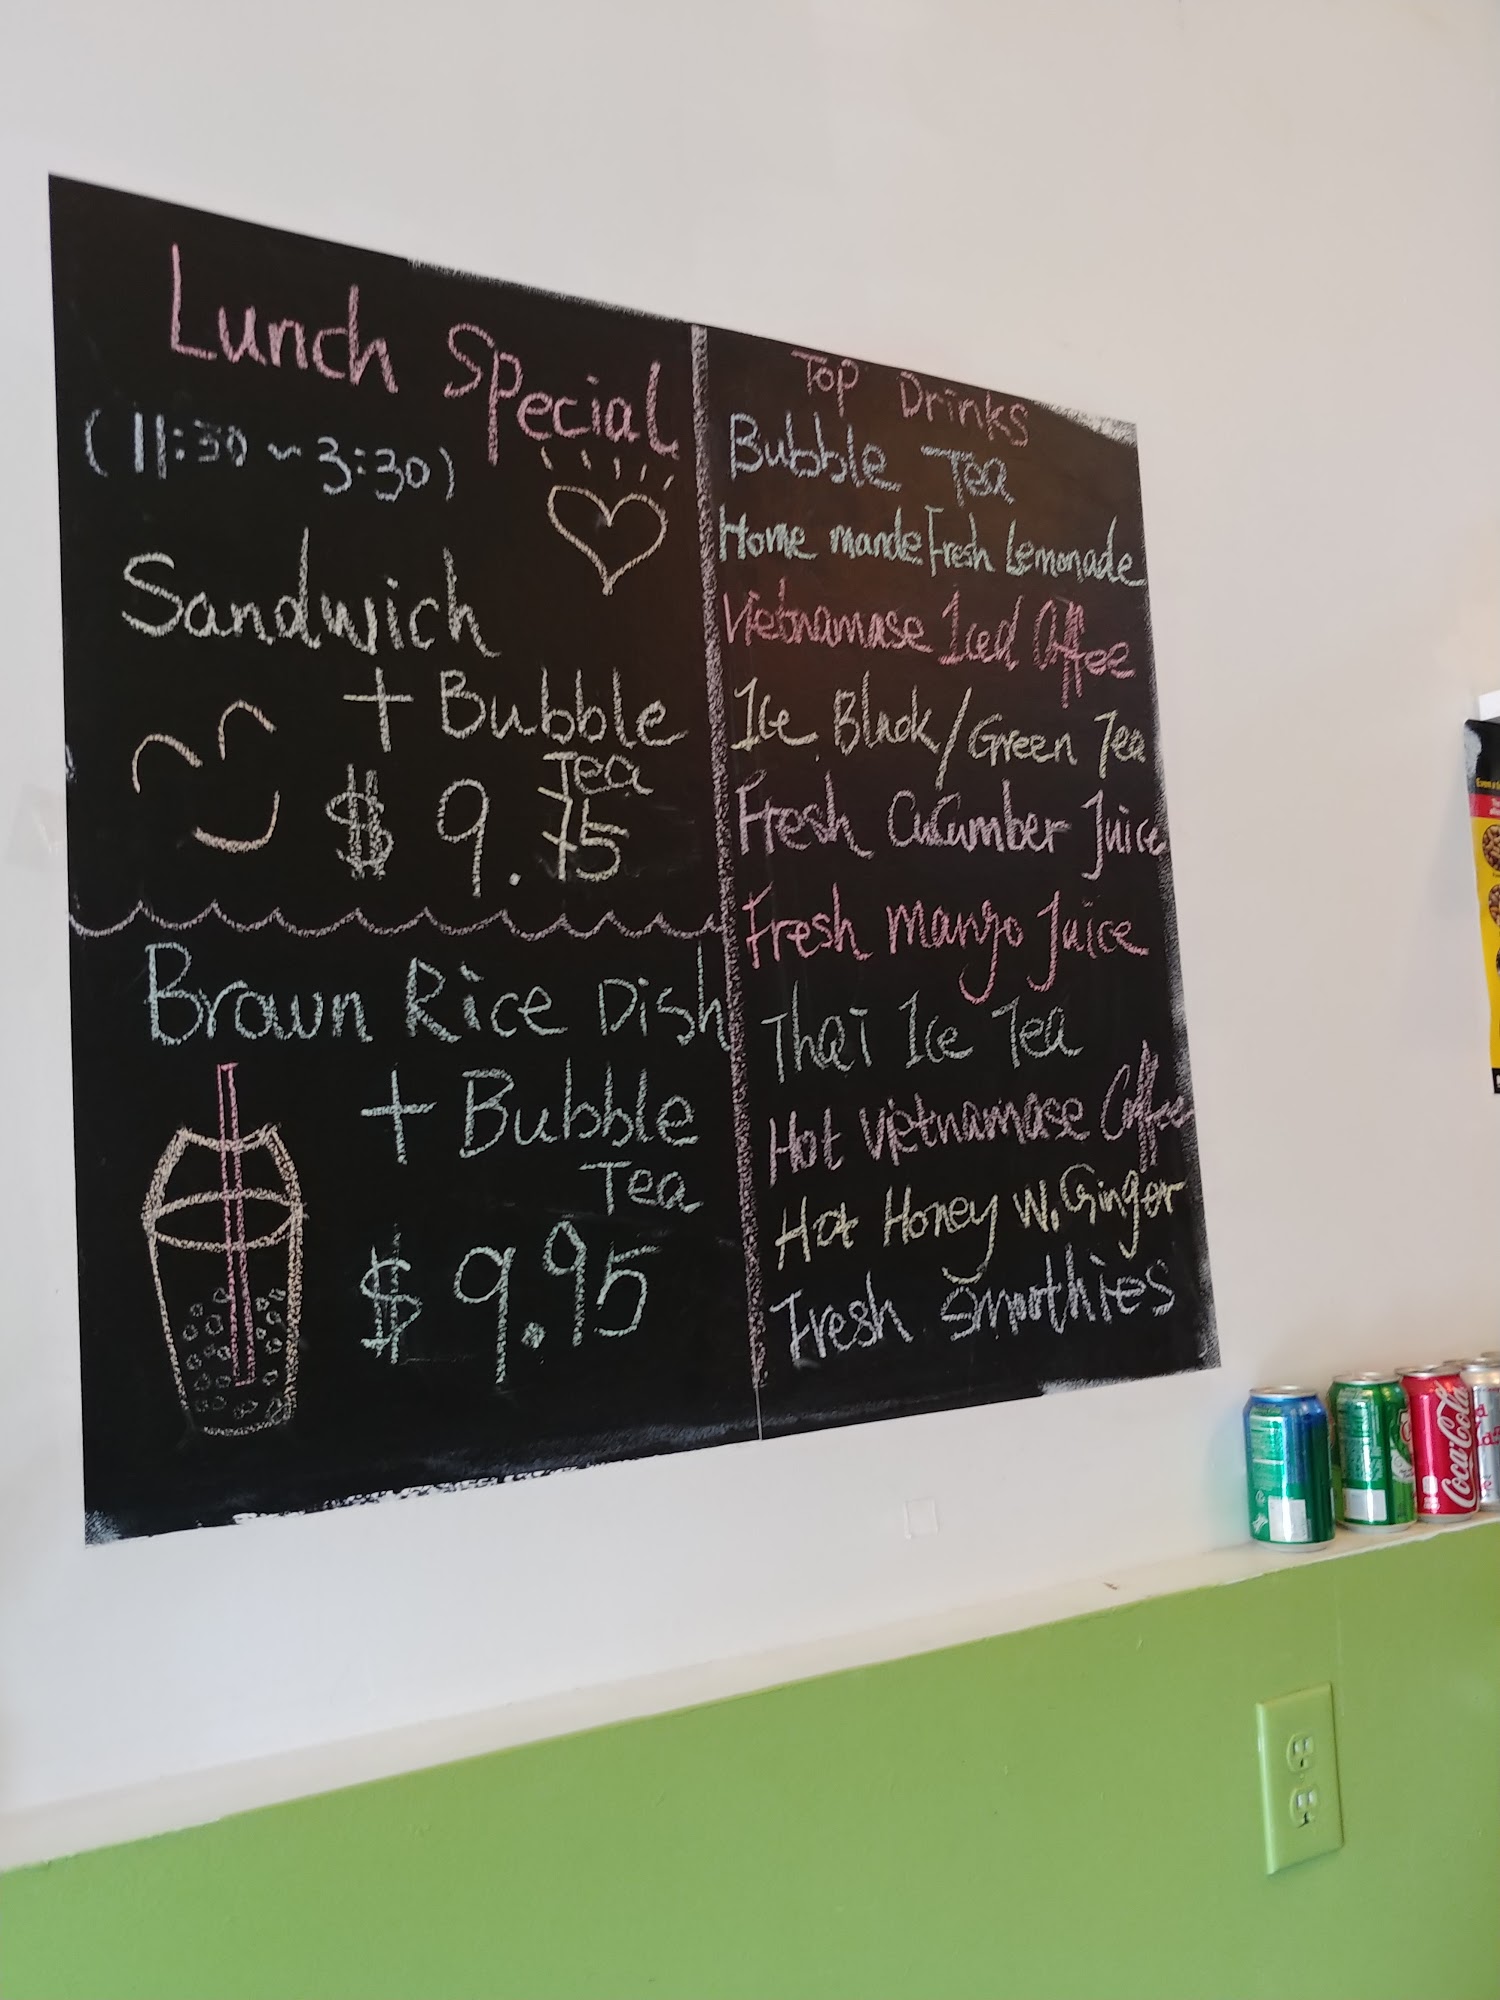 Lunch Special
(11:30 ~ 3:30)
Sandwich
+ Bubble
Tea
$ 9.75
Brown Rice Dish
+ Bubble
Tea
$ 9.95
Top Drinks
Bubble Tea
Home mande Fresh Lemonade
Vietnamase Iced Coffee
Ice Black/Green Tea
Fresh Cucumber Juice
Fresh Mango Juice
Thai Ice Tea
Hot Vietnamase Coffee
Hot Honey W. Ginger
Fresh Smoothies
Coca-Cola